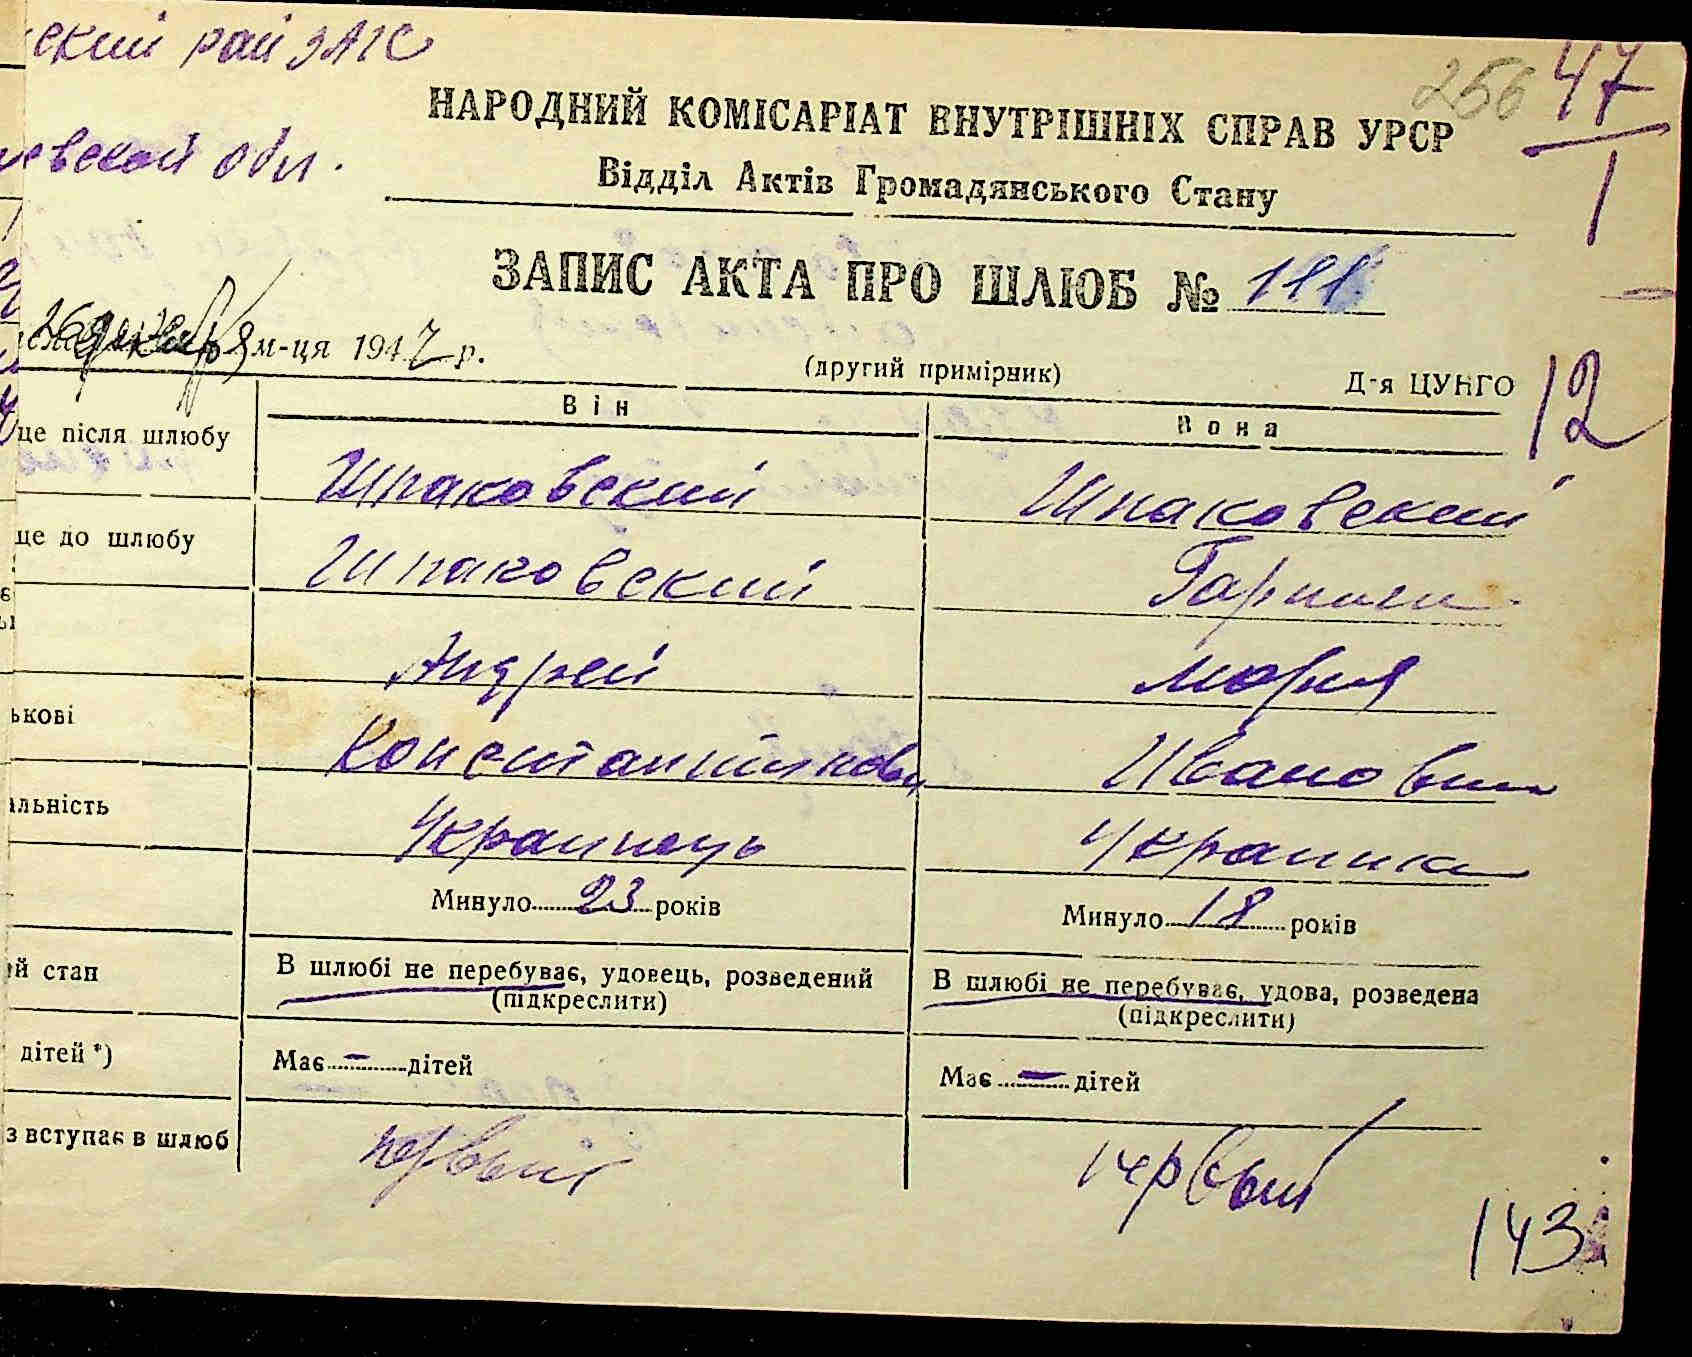 ский рай ЗАГС
256 47
НАРОДНИЙ КОМІСАРІАТ ВНУТРІШНІХ СПРАВ УРСР
евской обл.
Відділ Актів Громадянського Стану
1
ЗАПИС АКТА ПРО ШЛЮБ № 111
26 декабря м-ця 1947 р.
(другий примірник)
Д-я ЦУНГО
12
Він Вона
це після шлюбу Шпаковский Шпаковский
це до шлюбу Шпаковский
Андрей Мария
ькові Константинович Ивановна
альність Украинець Украинка
Минуло 23 років Минуло 18 років
ий стан В шлюбі не перебуває, удовець, розведений В шлюбі не перебуває, удова, розведена
(підкреслити) (підкреслити)
дітей *) Має – дітей Має – дітей
з вступає в шлюб первый первый
143